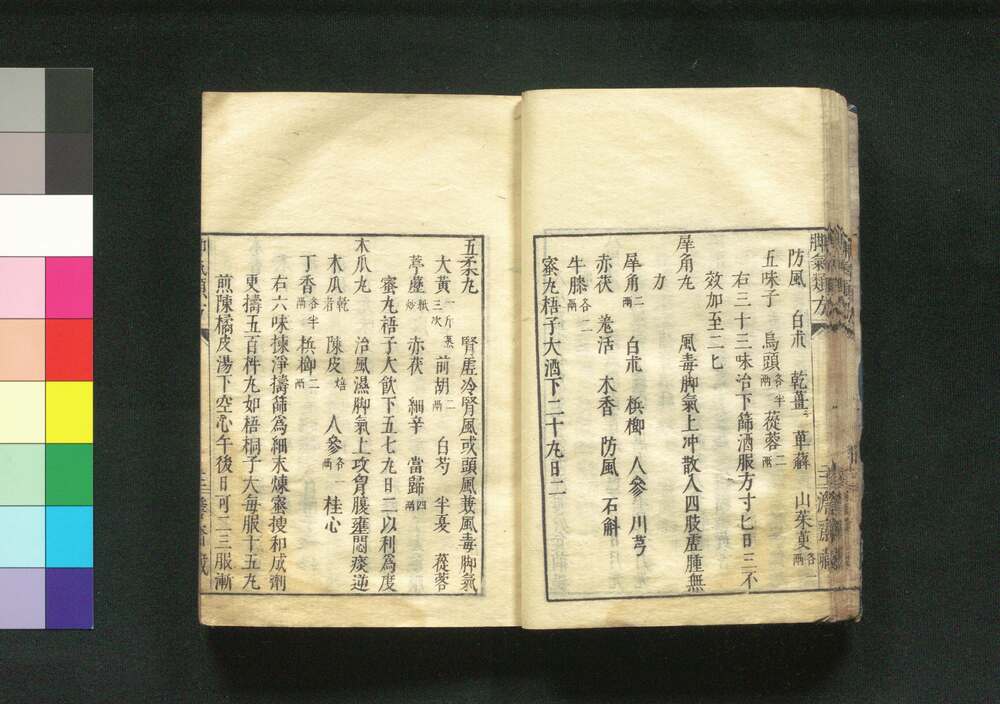 脚氣類方
防風 白朮 乾薑三 萆薢 山茱萸各一兩
五味子 烏頭各半兩 蓯蓉二兩
右三十三味治下篩酒服方寸匕日三不
效加至二匕
犀角丸 風毒脚氣上冲散入四肢虛腫無
力
犀角二兩 白朮 梹榔 人參 川芎
赤茯 羗活 木香 防風 石斛
牛膝各一兩
蜜丸梧子大酒下二十丸日二
五柔丸 腎虛冷腎風或頭風蓑風毒脚氣
大黃一斤蒸三次 前胡二兩 白芍 半夏 蓯蓉
葶藶紙炒 赤茯 細辛 當歸四兩
蜜丸梧子大飲下五七丸日二以利爲度
木瓜丸 治風濕脚氣上攻胷腹壅悶痰逆
木瓜乾者 陳皮焙 人參各一兩 桂心
丁香各半兩 梹榔二兩
右六味揀淨擣篩爲細末煉蜜搜和成劑
更擣五百杵丸如梧桐子大每服十五丸
煎陳橘皮湯下空心午後日可二三服漸